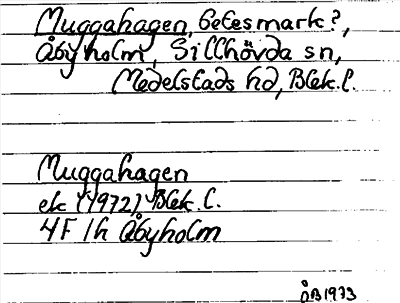 Muggahagen, betesmark?,
Åbyholm, Sillhövda sn,
Medelstads hd, Blek. l.
Muggahagen
ek (1972) Blek. l.
4F 1h Åbyholm
ÖB 1973